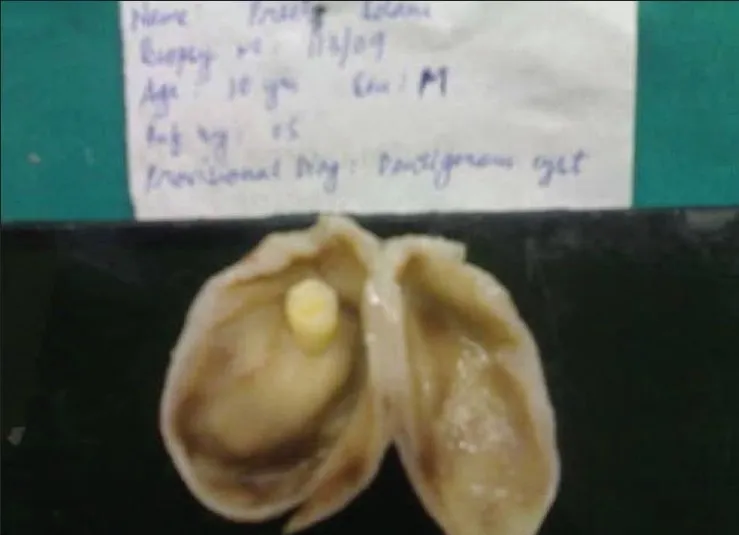 Name:
Biopsy no: 112/09
Age: 10 yrs Sex: M
Ref by: OS
Provisional Diag: Dentigerous cyst